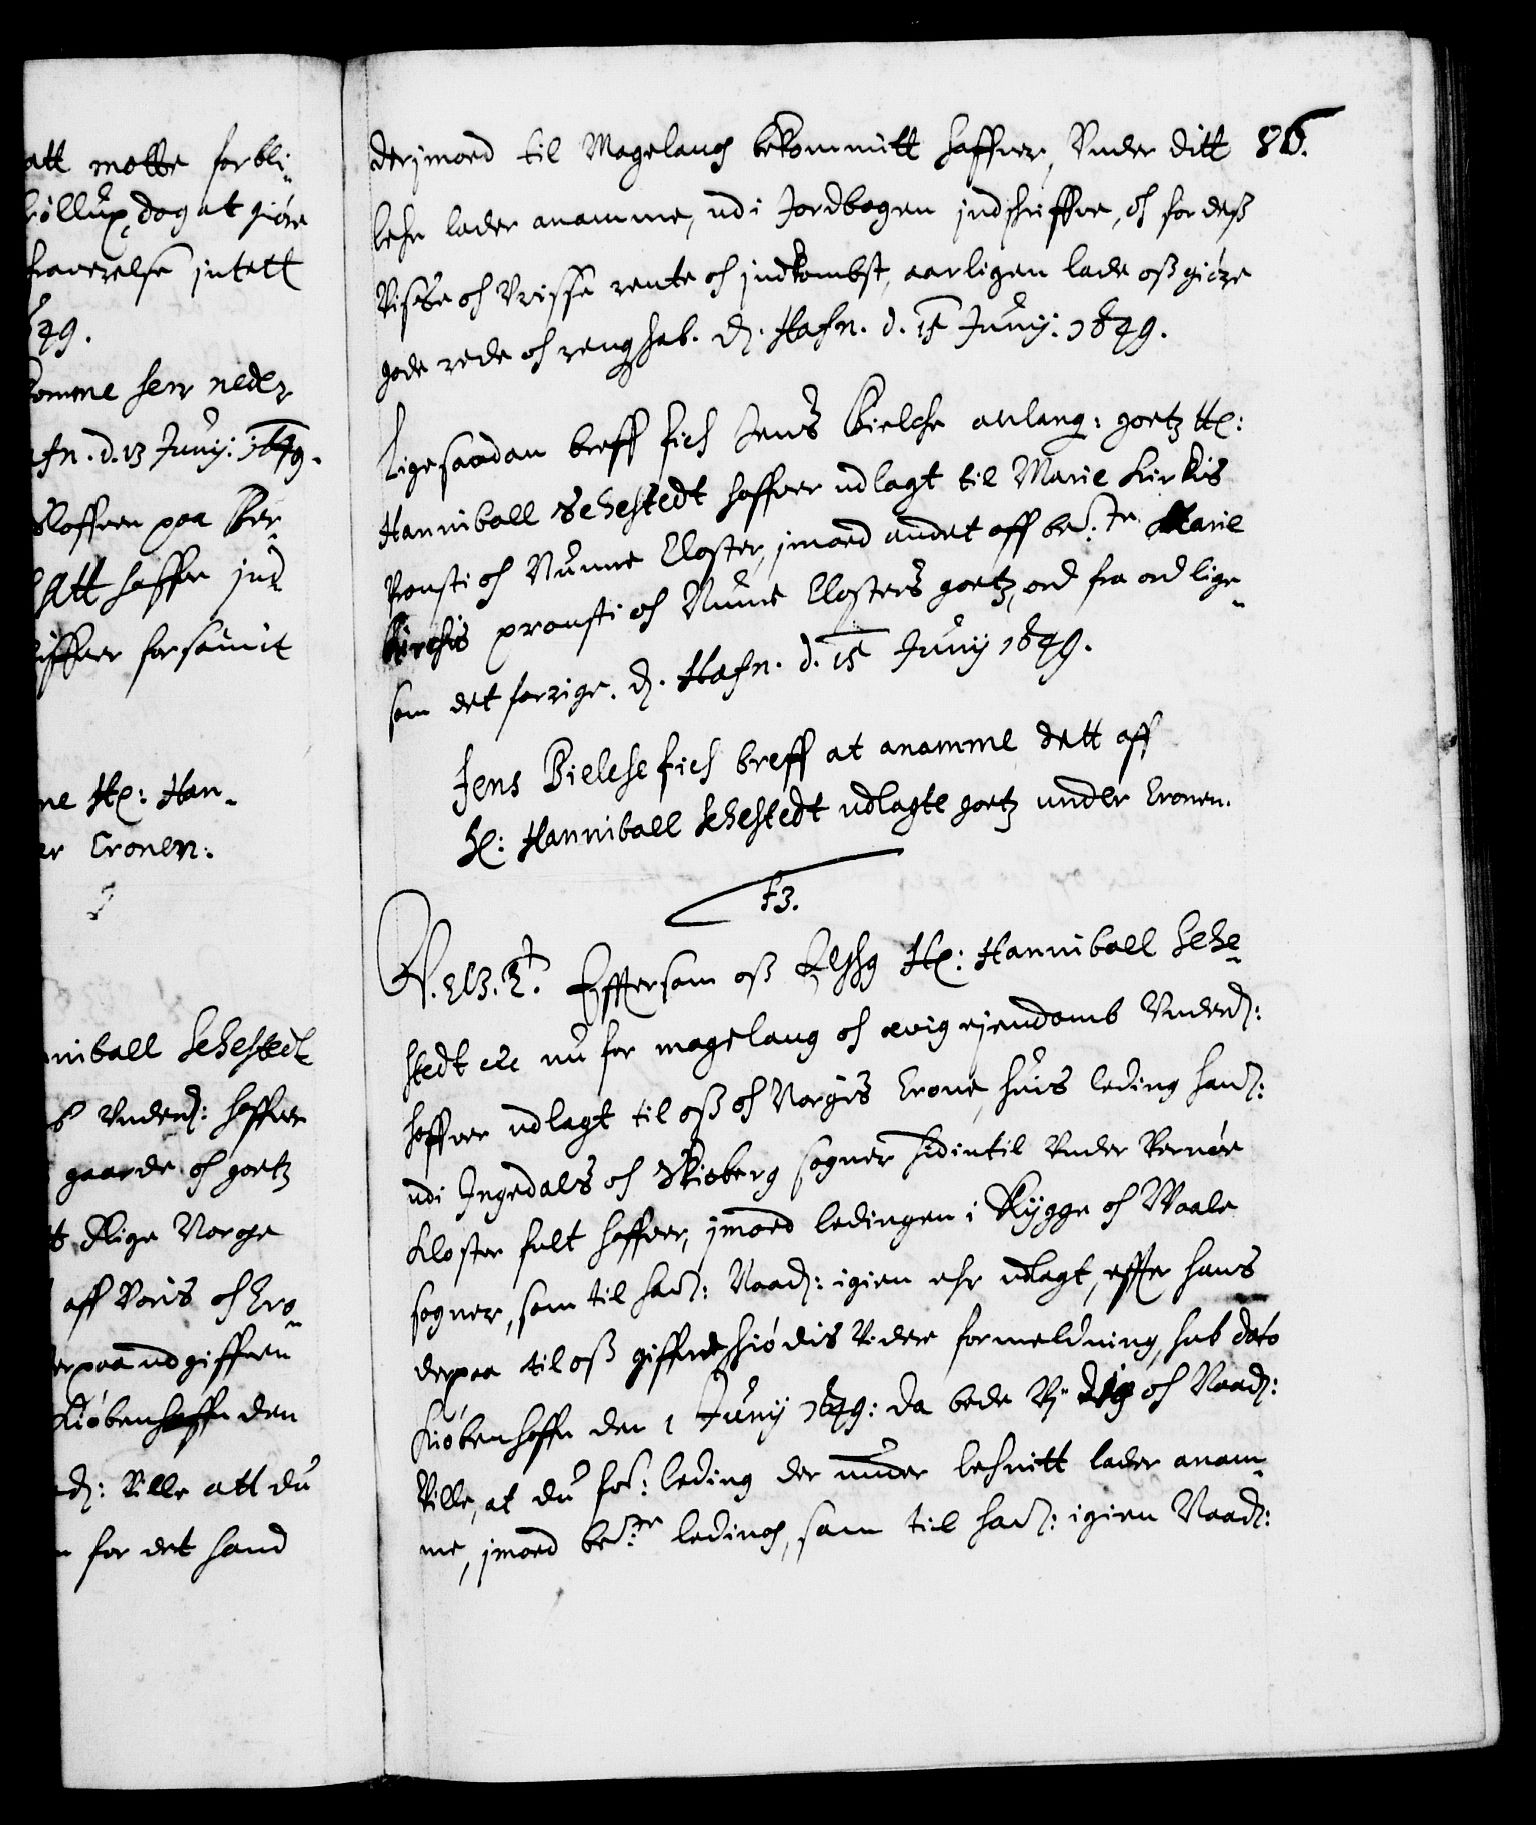 att motte forbli¬
bröllup, dog at giöre
fraverelse jntett
649.
komme herr neder
Hafn. d. 13 Junij: 1649.
Sloffuen paa Ber¬
hatt haffue jnd
giffuer forsamit
ne Hr: Han¬
er Cronen:
Hanniball Sehestedt
b Vnderd: haffuer
gaarde och goetz
tt Rige Norge
aff Voris och Cro¬
derpaa udgiffuen
Kiøbenhaffn den
nad: Ville att du
n for det hand
derjmoed til Magelaug bekommitt haffuer, Vnder ditt 86.
lehn lader anamme, udi Jordbogen jndschriffue, och for deß
Visse och Vvisse rente och jndkombst, aarligen lade oß giöre
gode rede och rengshab. D. Hafn. d. 15 Junij: 1649.
Ligesaadan breff fich Jens Bielche anlang: goetz Hr:
Hanniball Sehestedt haffuer udlagt til Marie Kirkis
Prousti och Nunne Closter, jmoed andet aff bete Marie
Kirchis prousti och Nunne Closters goetz, ord fra ord lige¬
som det forrige. D. Hafn. d. 15 Junij 1649.
Jens Bielche fich breff at anamme dett aff
Hr: Hanniball Sehestedt udlagte goetz under Cronen.
F3.
V. G. T. Efftersom oß Elschg Hr: Hanniball Sehe¬
stedt etc nu for magelaug och ævig eyendomb Vnderd:
haffuer udlagt til oß och Norgis Crone, huis leding hand:
udi Ingedals och Skieberg sogner hidintil Vnder Vernøe
Kloster fult haffuer, jmoed ledingen i Rygge och Waale
sogner, som til ham: Naad: igien ehr udlagt, effter hans
derpaa til oß giffne schiödis Videre formeldning, sub dato
Kiøbenhaffn den 1 Junij 1649: Da bede Vj dig och Naad:
Ville, at du for: leding der under lehnitt lader anam¬
me, jmoed bete leding, som til ham: igien Naad: